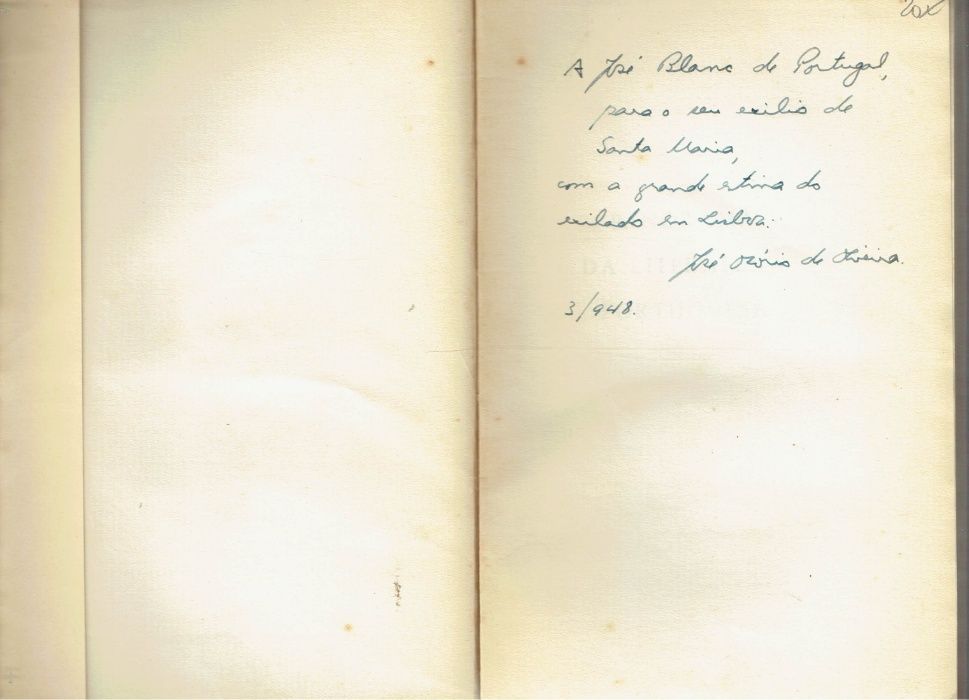 A José Blanc de Portugal,
para o seu exilio de
Santa Maria,
com a grande estima do
exilado em Lisboa:
José Osório de Oliveira.
3/948.